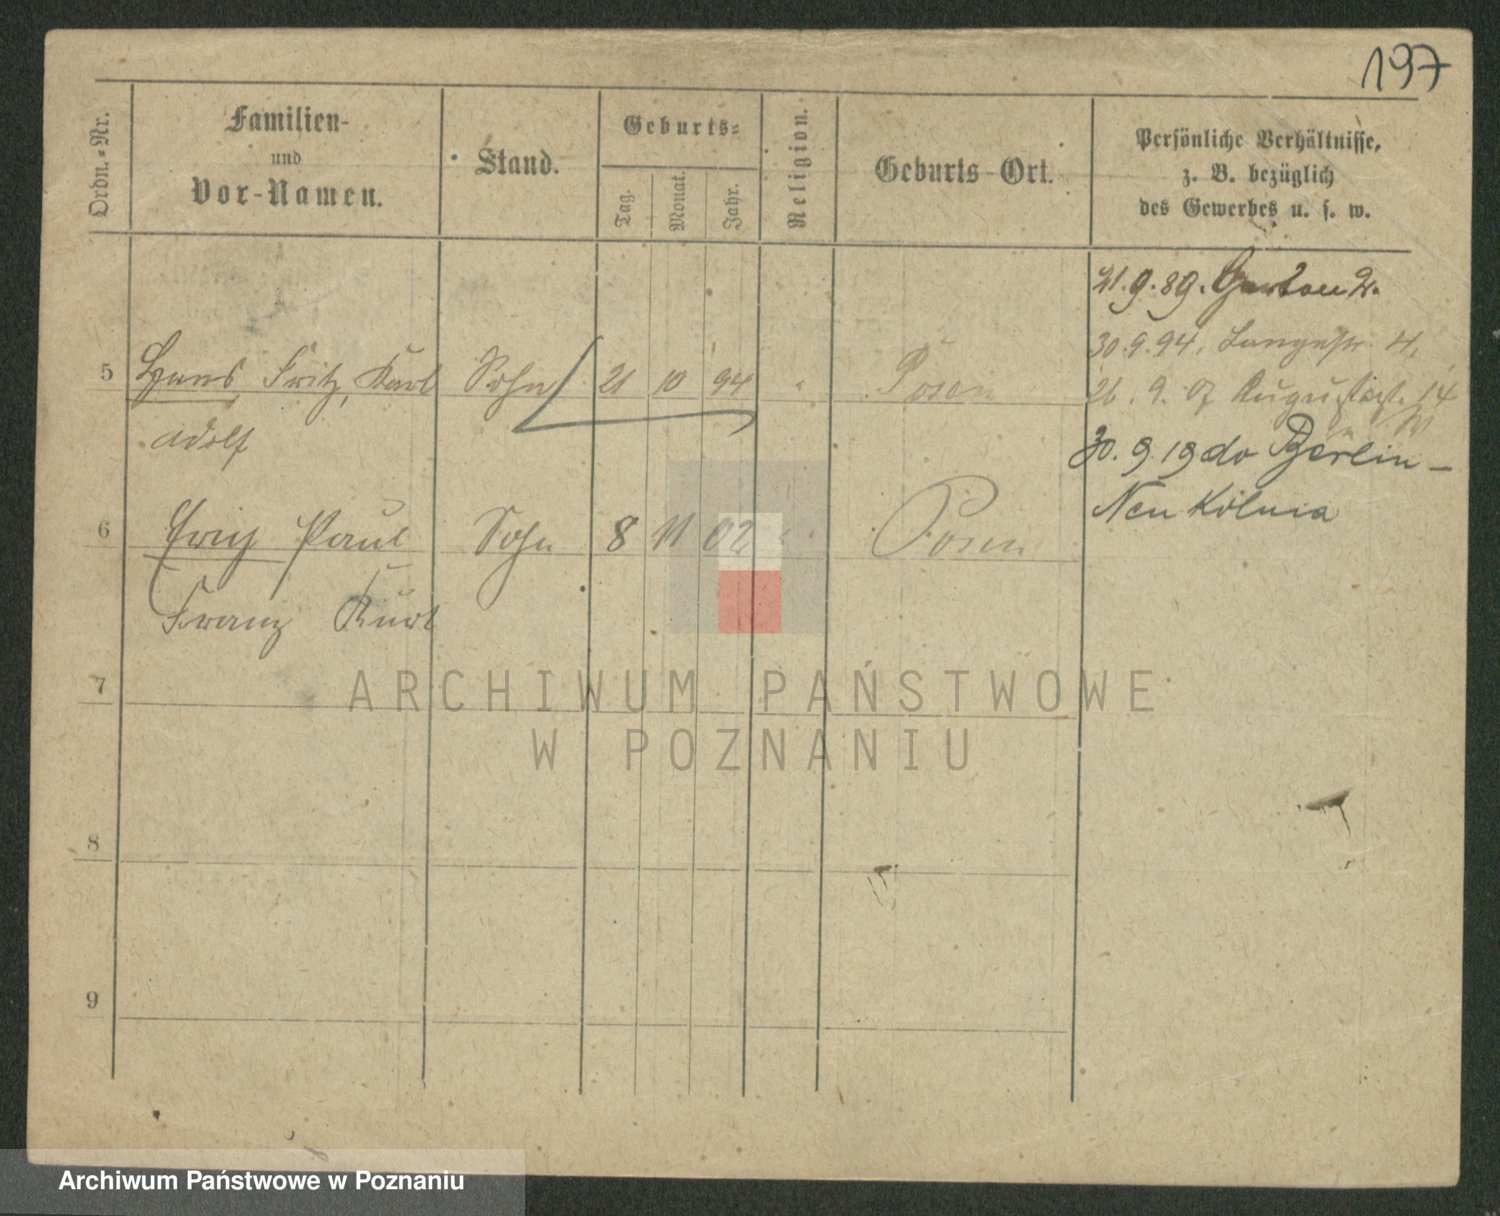 197
Ordn.-Nr.
Familien-
und
Vor-Namen.
Stand.
Geburts-
Tag.
Monat.
Jahr.
Religion.
Geburts-Ort.
Persönliche Verhältnisse,
z. B. bezüglich
des Gewerbes u. s. w.
21.9.89. Garten 2.
30.9.94. Langestr. 4.
5 Hans Fritz, Karl Sohn 21 10 94 Posen
26. 9. 07 Augustast. 14
Adolf
30. 9. 19 do Berlin –
Neu Kölnia
6 Erich Paul Sohn 8 11 02 Posen
Franz Kurt
7
ARCHIWUM PAŃSTWOWE
W POZNANIU
8
9
Archiwum Państwowe w Poznaniu